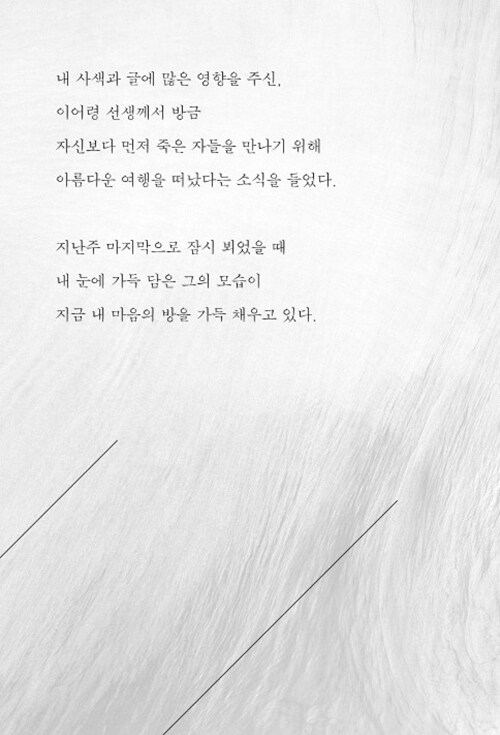 내 사색과 글에 많은 영향을 주신,
이어령 선생께서 방금
자신보다 먼저 죽은 자들을 만나기 위해
아름다운 여행을 떠났다는 소식을 들었다.
지난주 마지막으로 잠시 뵈었을 때
내 눈에 가득 담은 그의 모습이
지금 내 마음의 방을 가득 채우고 있다.